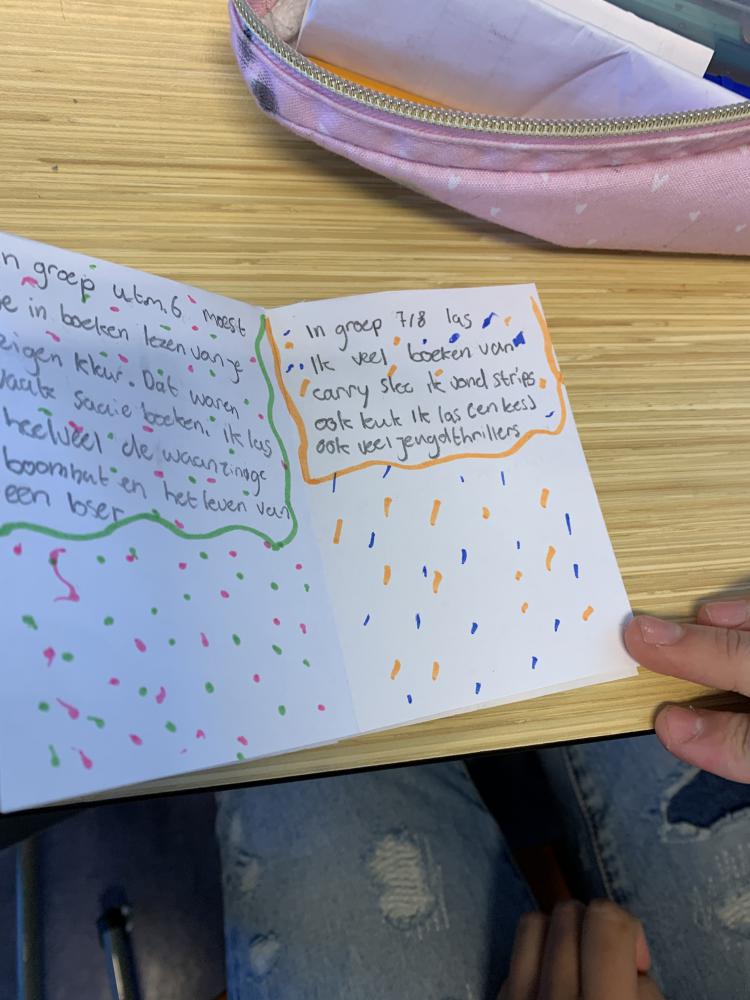 n groep 4 t.m. 6 moest
e in boeken lezen van je
eigen kleur. Dat waren
vaak saaie boeken. Ik las
heel veel de waanzinnige
boomhut en het leven van
een loser
In groep 7/8 las
Ik veel boeken van
carry slee ik vond strips
ook leuk Ik las (en lees)
ook veel jeugdthrillers